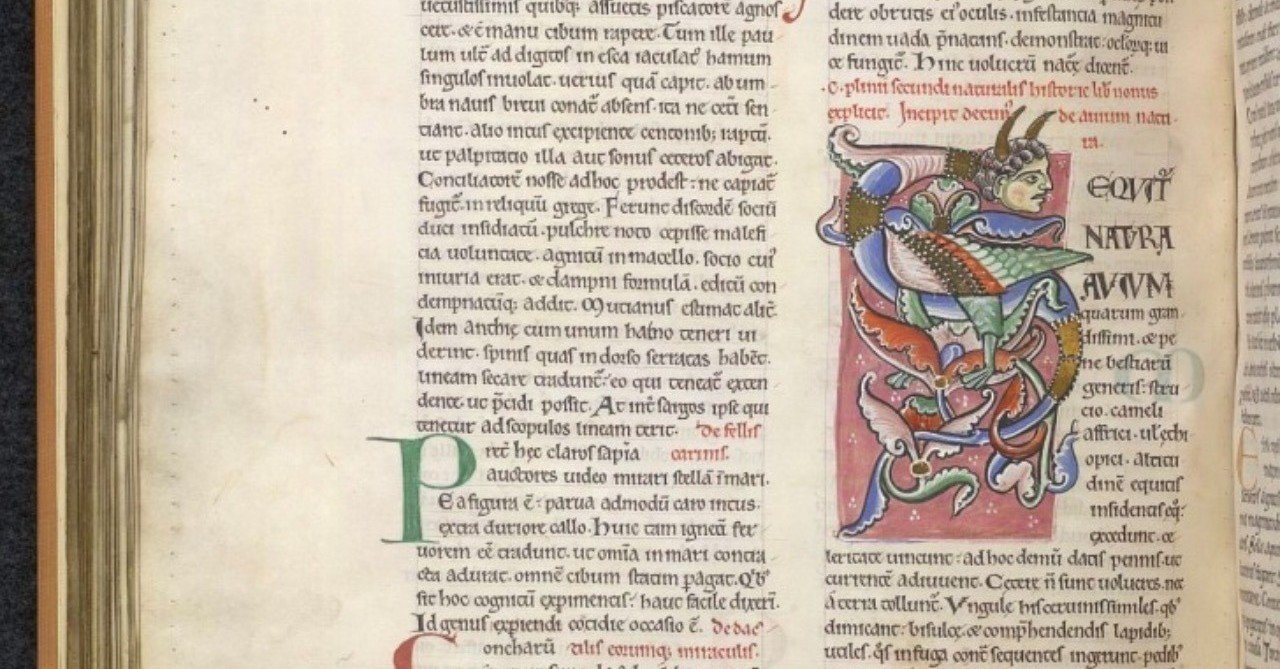 uetustissimis quibq; assuetis piscatore agnos
cere. & ē manu cibum rapere. Tum ille pau
lum ulť ad digitos in esca iaculať hamum
singulos inuolat. uerius quā capit. ab um
bra nauis breui conať absens. ita ne cęti sen
tiant. alio intus excipiente centonib; raptū.
ut palpitatio illa aut sonus ceteros abigat.
Conciliatorē nosse ad hoc prodest: ne capiať
fugiť. in reliquū grege. Ferunt discordē sociū
duci insidiatū. pulchre noto cępisse malefi
cia uoluntate. agnitū in macello. socio cui'
iniuria erat. & dampni formulā. editū con
dempnatūq; addit. Mutianus estimat. aliť.
Idem anthię cum unum hamo teneri ui
derint. spinis quas in dorso serratas habēt.
lineam secare tradunť: eo qui teneať exten
dente. ut p̄cidi possit. At int̄ sargos ipse qui
tenetur ad scopulos lineam terit. de stellis
Pręť hęc claros sapīa marinis.
auctores uideo mirari stellā ī mari.
Ea figura ē: parua admodū caro intus.
extra duriore callo. Huic tam igneū fer
uorem eē tradunt. ut om̄ia in mari conta
cta adurat. omnē cibum statim p̄agat. Qb'
sit hoc cognitū exp̄imentis: haut facile dixerī.
Id genus exp̄iendi cotidie occasio ē. De dac
Concharū tilis eorumq; miraculis.
dere obrutis & oculis. infestantia magnitu
dinem uada p̄natans. demonstrat: oclorūq; ui
ce fungiť. Hinc uolucrū natę dicent.
C. plinii secundi naturalis historię lib' nonus
explicit. Incipit decim' de auium natu
ra.
SEQVIT̄
NATVRA
AVIVM
quarum gran
dissimi. & pe
ne bestiarū
generis: stru
cio. cameli
affrici. ul' ęthi
opici. altitu
dinē equitis
insidentis eq̄:
excedunt. ce
leritate uincunt: ad hoc demū datis pennis ut
currentē adiuuent. Cetere ñ sunt uolucres. nec
a terra tollunť. Vngule his ceruinis similes. qb'
dimicant: bisulcę. & comp̄hendendis lapidib;
utiles. qs in fuga cont̄ sequentes ingerunt. pedib'